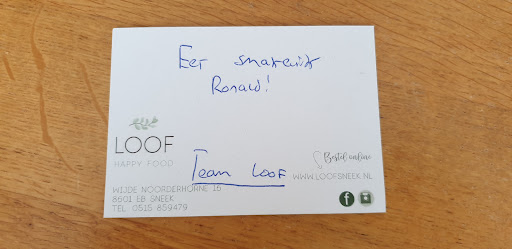 Eet smakelijk
Ronald!
LOOF
HAPPY FOOD
Team LOOF
Bestel online
WWW.LOOFSNEEK.NL
WIJDE NOORDERHORNE 16
8601 EB SNEEK
TEL 0515 859479